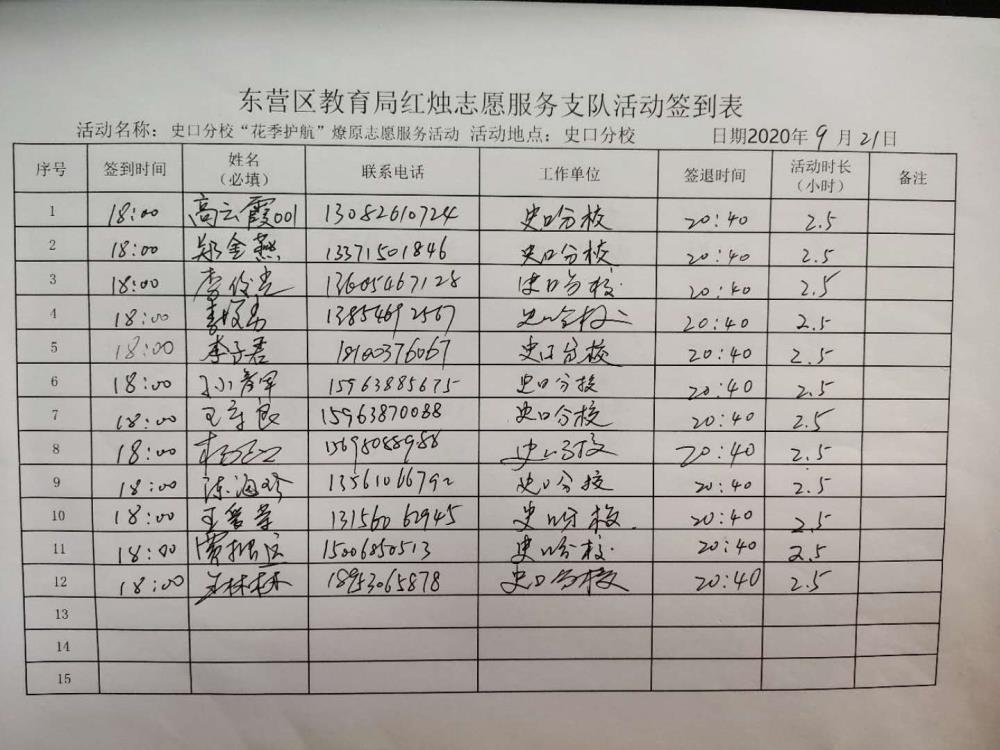 东营区教育局红烛志愿服务支队活动签到表
活动名称：史口分校“花季护航”燎原志愿服务活动 活动地点：史口分校 日期2020年 9 月 21日
序号 签到时间 姓名（必填） 联系电话 工作单位 签退时间 活动时长（小时） 备注
1 18:00 高云霞001 13082610724 史口分校 20:40 2.5
2 18:00 郑金燕 13371501846 史口分校 20:40 2.5
3 18:00 李 13605467128 史口分校 20:40 2.5
4 18:00 李 13854692567 史口分校 20:40 2.5
5 18:00 李子君 18100376067 史口分校 20:40 2.5
6 18:00 15963885675 史口分校 20:40 2.5
7 18:00 王 良 15963870088 史口分校 20:40 2.5
8 18:00 史口分校 20:40 2.5
9 18:00 陈海珍 13561066792 史口分校 20:40 2.5
10 18:00 王 13156062945 史口分校 20:40 2.5
11 18:00 贾 15006850513 史口分校 20:40 2.5
12 18:00 王林林 18953065878 史口分校 20:40 2.5
13
14
15